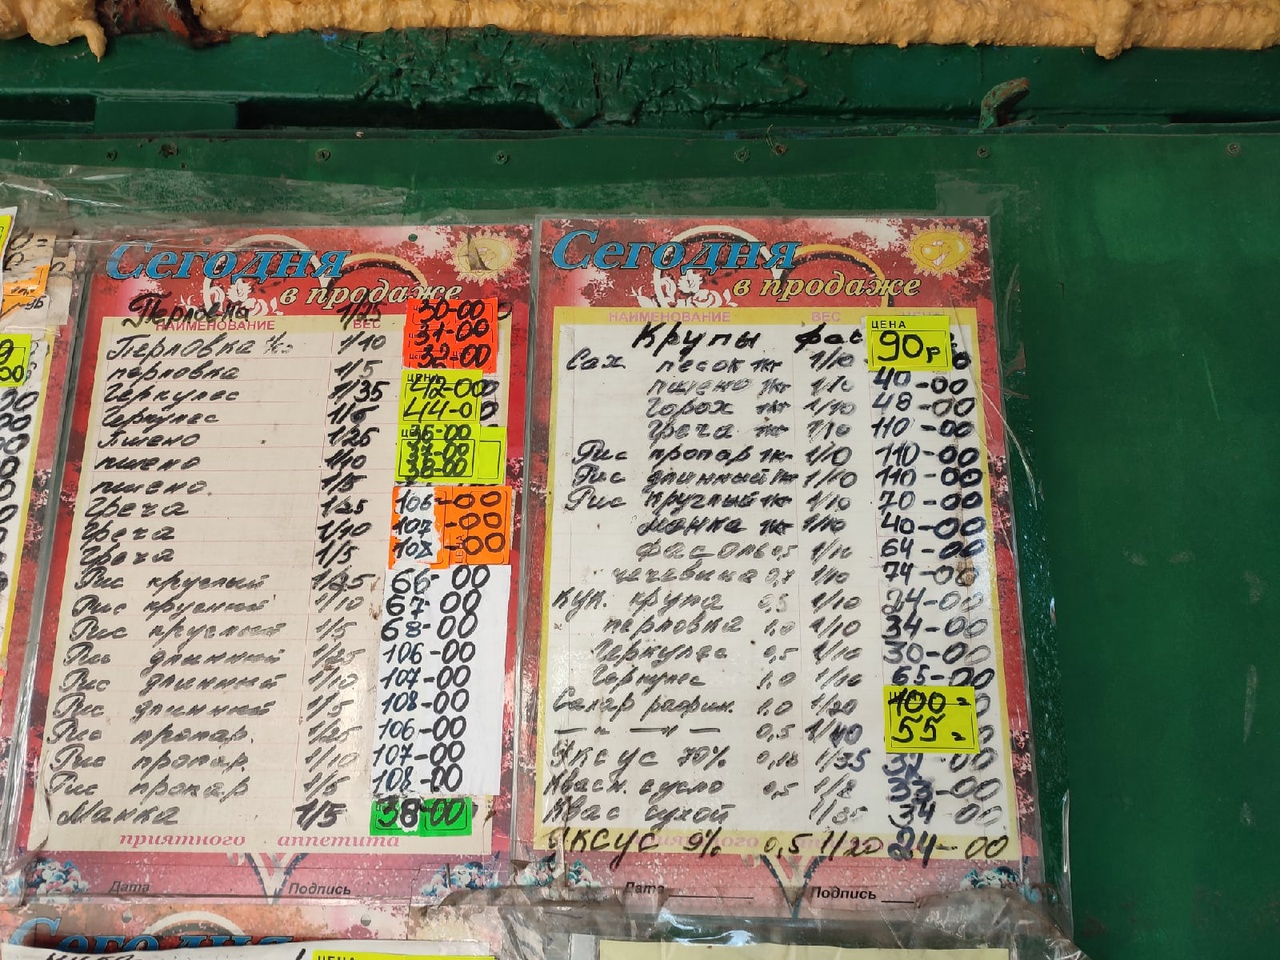 Сегодня
в продаже
Перловка 1/25 30-00
НАИМЕНОВАНИЕ ВЕС
Перловка 1/10 31-00
перловка 1/5 32-00
Геркулес 1/35 42-00
Геркулес 1/6 44-00
Пшено 1/25 36-00
пшено 1/10 37-00
пшено 1/5 38-00
Греча 1/25 106-00
Греча 1/10 107-00
Греча 1/5 108-00
Рис круглый 1/25 66-00
Рис круглый 1/10 67-00
Рис круглый 1/5 68-00
Рис длинный 1/25 106-00
Рис длинный 1/10 107-00
Рис длинный 1/5 108-00
Рис пропар. 1/25 106-00
Рис пропар. 1/10 107-00
Рис пропар 1/5 108-00
Манка 1/5 38-00
приятного аппетита
Дата Подпись
Сегодня
в продаже
НАИМЕНОВАНИЕ ВЕС ЦЕНА
Крупы фас
Сах песок 1кг 1/10 90р
пшено 1кг 1/10 40-00
Горох 1кг 1/10 48-00
Греча 1кг 1/10 110-00
Рис пропар 1к 1/10 110-00
Рис длинный 1к 1/10 110-00
Рис круглый 1к 1/10 70-00
манка 1к 1/10 40-00
фасоль 0,5 1/10 64-00
чечевица 0,7 1/10 74-00
Кук. крупа 0,5 1/10 24-00
перловка 1,0 1/10 34-00
Геркулес 0,5 1/10 30-00
Геркулес 1,0 1/10 65-00
Сахар рафин. 1,0 1/20 100=
—"—"— 0,5 1/40 55=
Уксус 70% 0,18 1/35 37-00
Квасн. сусло 0,5 1/8 33-00
Квас сухой 1/35 34-00
Уксус 9% 0,5 1/20 24-00
Дата Подпись
Сегодня
ЦЕНА